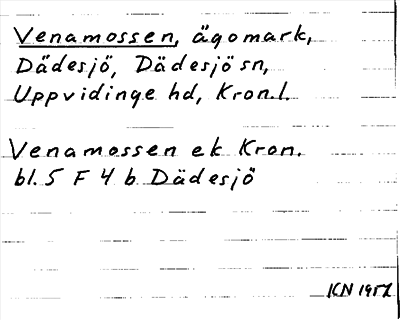 Venamossen, ägomark,
Dädesjö, Dädesjö sn,
Uppvidinge hd, Kron.l.
Venamossen ek Kron.
bl. 5 F 4 b Dädesjö
KN